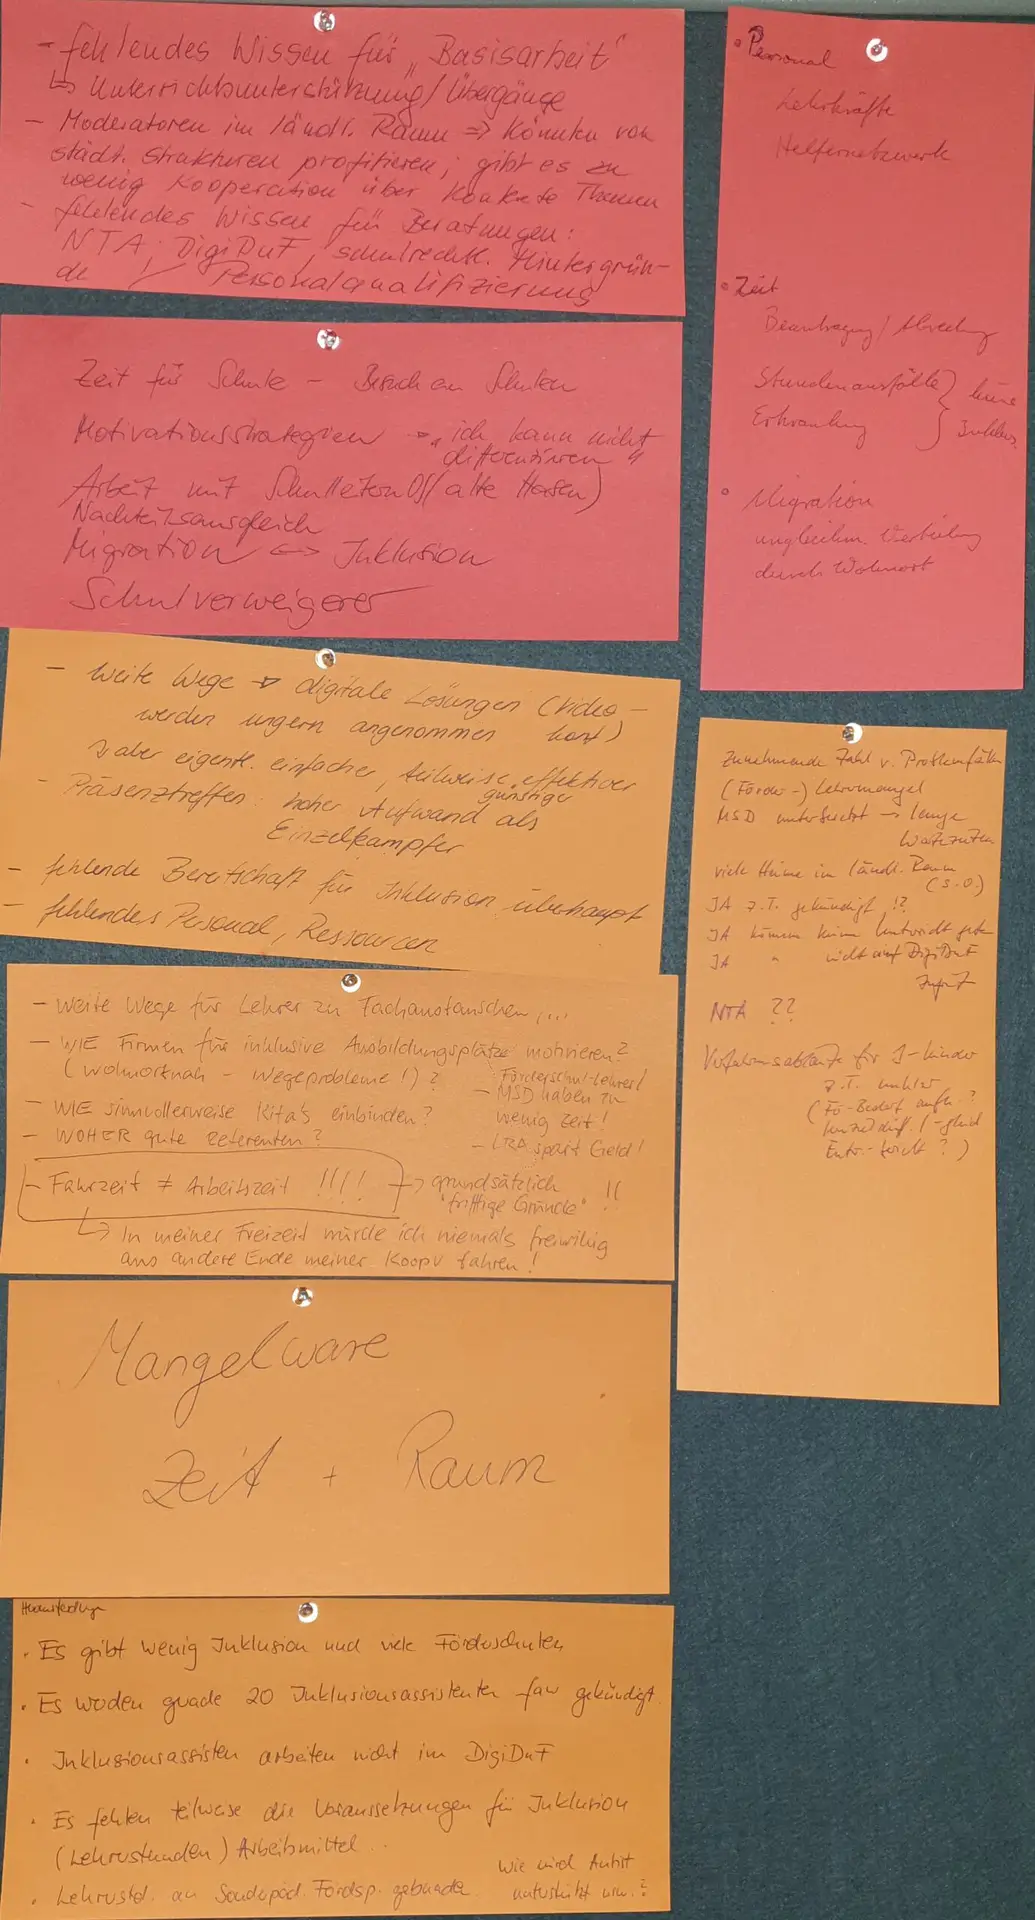 - fehlendes Wissen für „Basisarbeit"
↳ Unterrichtsunterstützung/Übergänge
- Moderatoren im ländl. Raum ⇒ könnten von
städt. Strukturen profitieren; gibt es zu
wenig Kooperation über konkrete Themen
- fehlendes Wissen für Beratungen:
NTA, DigiDuF, schulrechtl. Hintergrün-
de / Personalqualifizierung
Zeit für Schule - Besuch an Schulen
Motivationsstrategien → „ich kann nicht
differenzieren"
Arbeit mit Schulleitern OS (alte Hasen)
Nachteilsausgleich
Migration ↔ Inklusion
Schulverweigerer
- weite Wege → digitale Lösungen (Video-
werden ungern angenommen konf)
↳ aber eigentl. einfacher, teilweise effektiver
günstiger
- Präsenztreffen: hoher Aufwand als
Einzelkämpfer
- fehlende Bereitschaft für Inklusion überhaupt
- fehlendes Personal, Ressourcen
- weite Wege für Lehrer zu Fachaustauschen,...
- WIE Firmen für inklusive Ausbildungsplätze motivieren?
(wohnortnah - Wegeprobleme!)?
- WIE sinnvollerweise Kita's einbinden?
- WOHER gute Referenten?
Förderschul-Lehrer/
- MSD haben zu
wenig Zeit!
- LRA spart Geld!
- Fahrzeit ≠ Arbeitszeit !!!! → grundsätzlich !!
"triftige Gründe"
↳ In meiner Freizeit würde ich niemals freiwillig
ans andere Ende meiner KoopV fahren!
Mangelware
Zeit + Raum
• Es gibt wenig Inklusion und viele Förderschulen
• Es werden gerade 20 Inklusionsassistenten gekündigt.
• Inklusionsassisten arbeiten nicht im DigiDuF
• Es fehlen teilweise die Voraussetzungen für Inklusion
(Lehrerstunden) Arbeitsmittel..
• Lehrerstd. an Sonderpäd. Fördsp. gebunden
wie wird
unterstützt usw.?
• Personal
Lehrkräfte
Helfernetzwerk
• Zeit
Beantragung /
Stundenausfälle } keine
Erkrankung } Inklus.
• Migration
ungleichm. Verteilung
durch Wohnort
Zunehmende Zahl v. Problemfällen
(Förder-) Lehrermangel
MSD unterbesetzt → lange
Wartezeiten
viele Heime im ländl. Raum
(s.o.)
IA z.T. gekündigt !?
IA können keinen Unterricht geben
IA " nicht auf DigiDuF
Zugriff
NTA ??
Verfahrensabläufe für I-Kinder
z.T. unklar
(Fö-Bedarf aufh.?
lernzieldiff. / -gleich
Entw.-bericht ?)